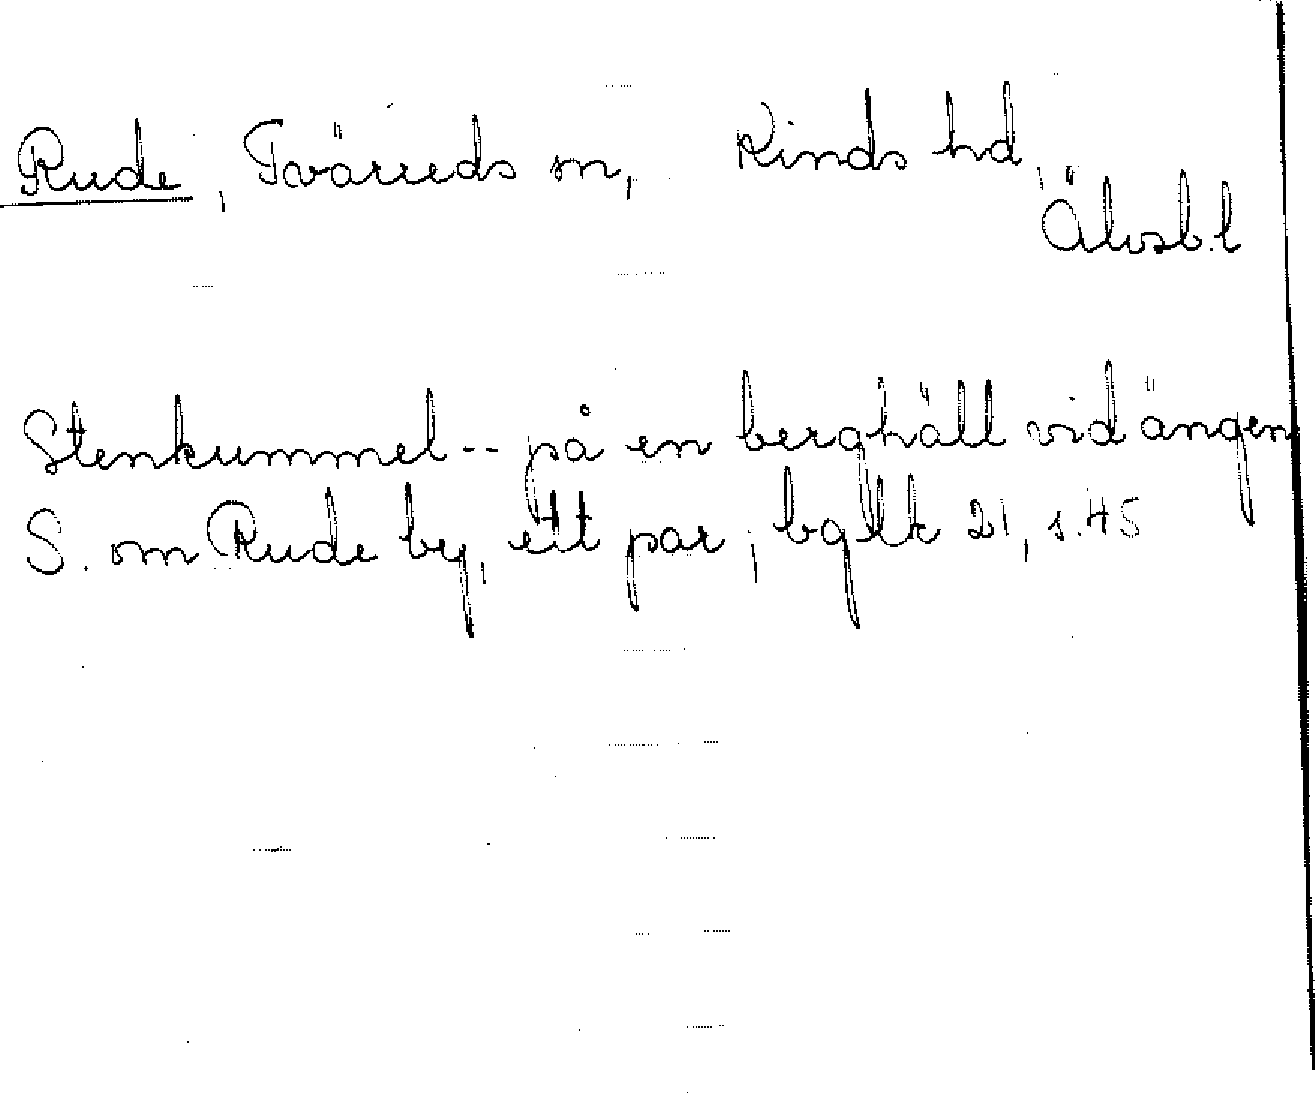 Rude, Tvärreds sn, Kinds hd,
Älvsb.l
Stenkummel -- på en berghäll vid ängen
S. om Rude by, ett par; bglk 21, s. 45